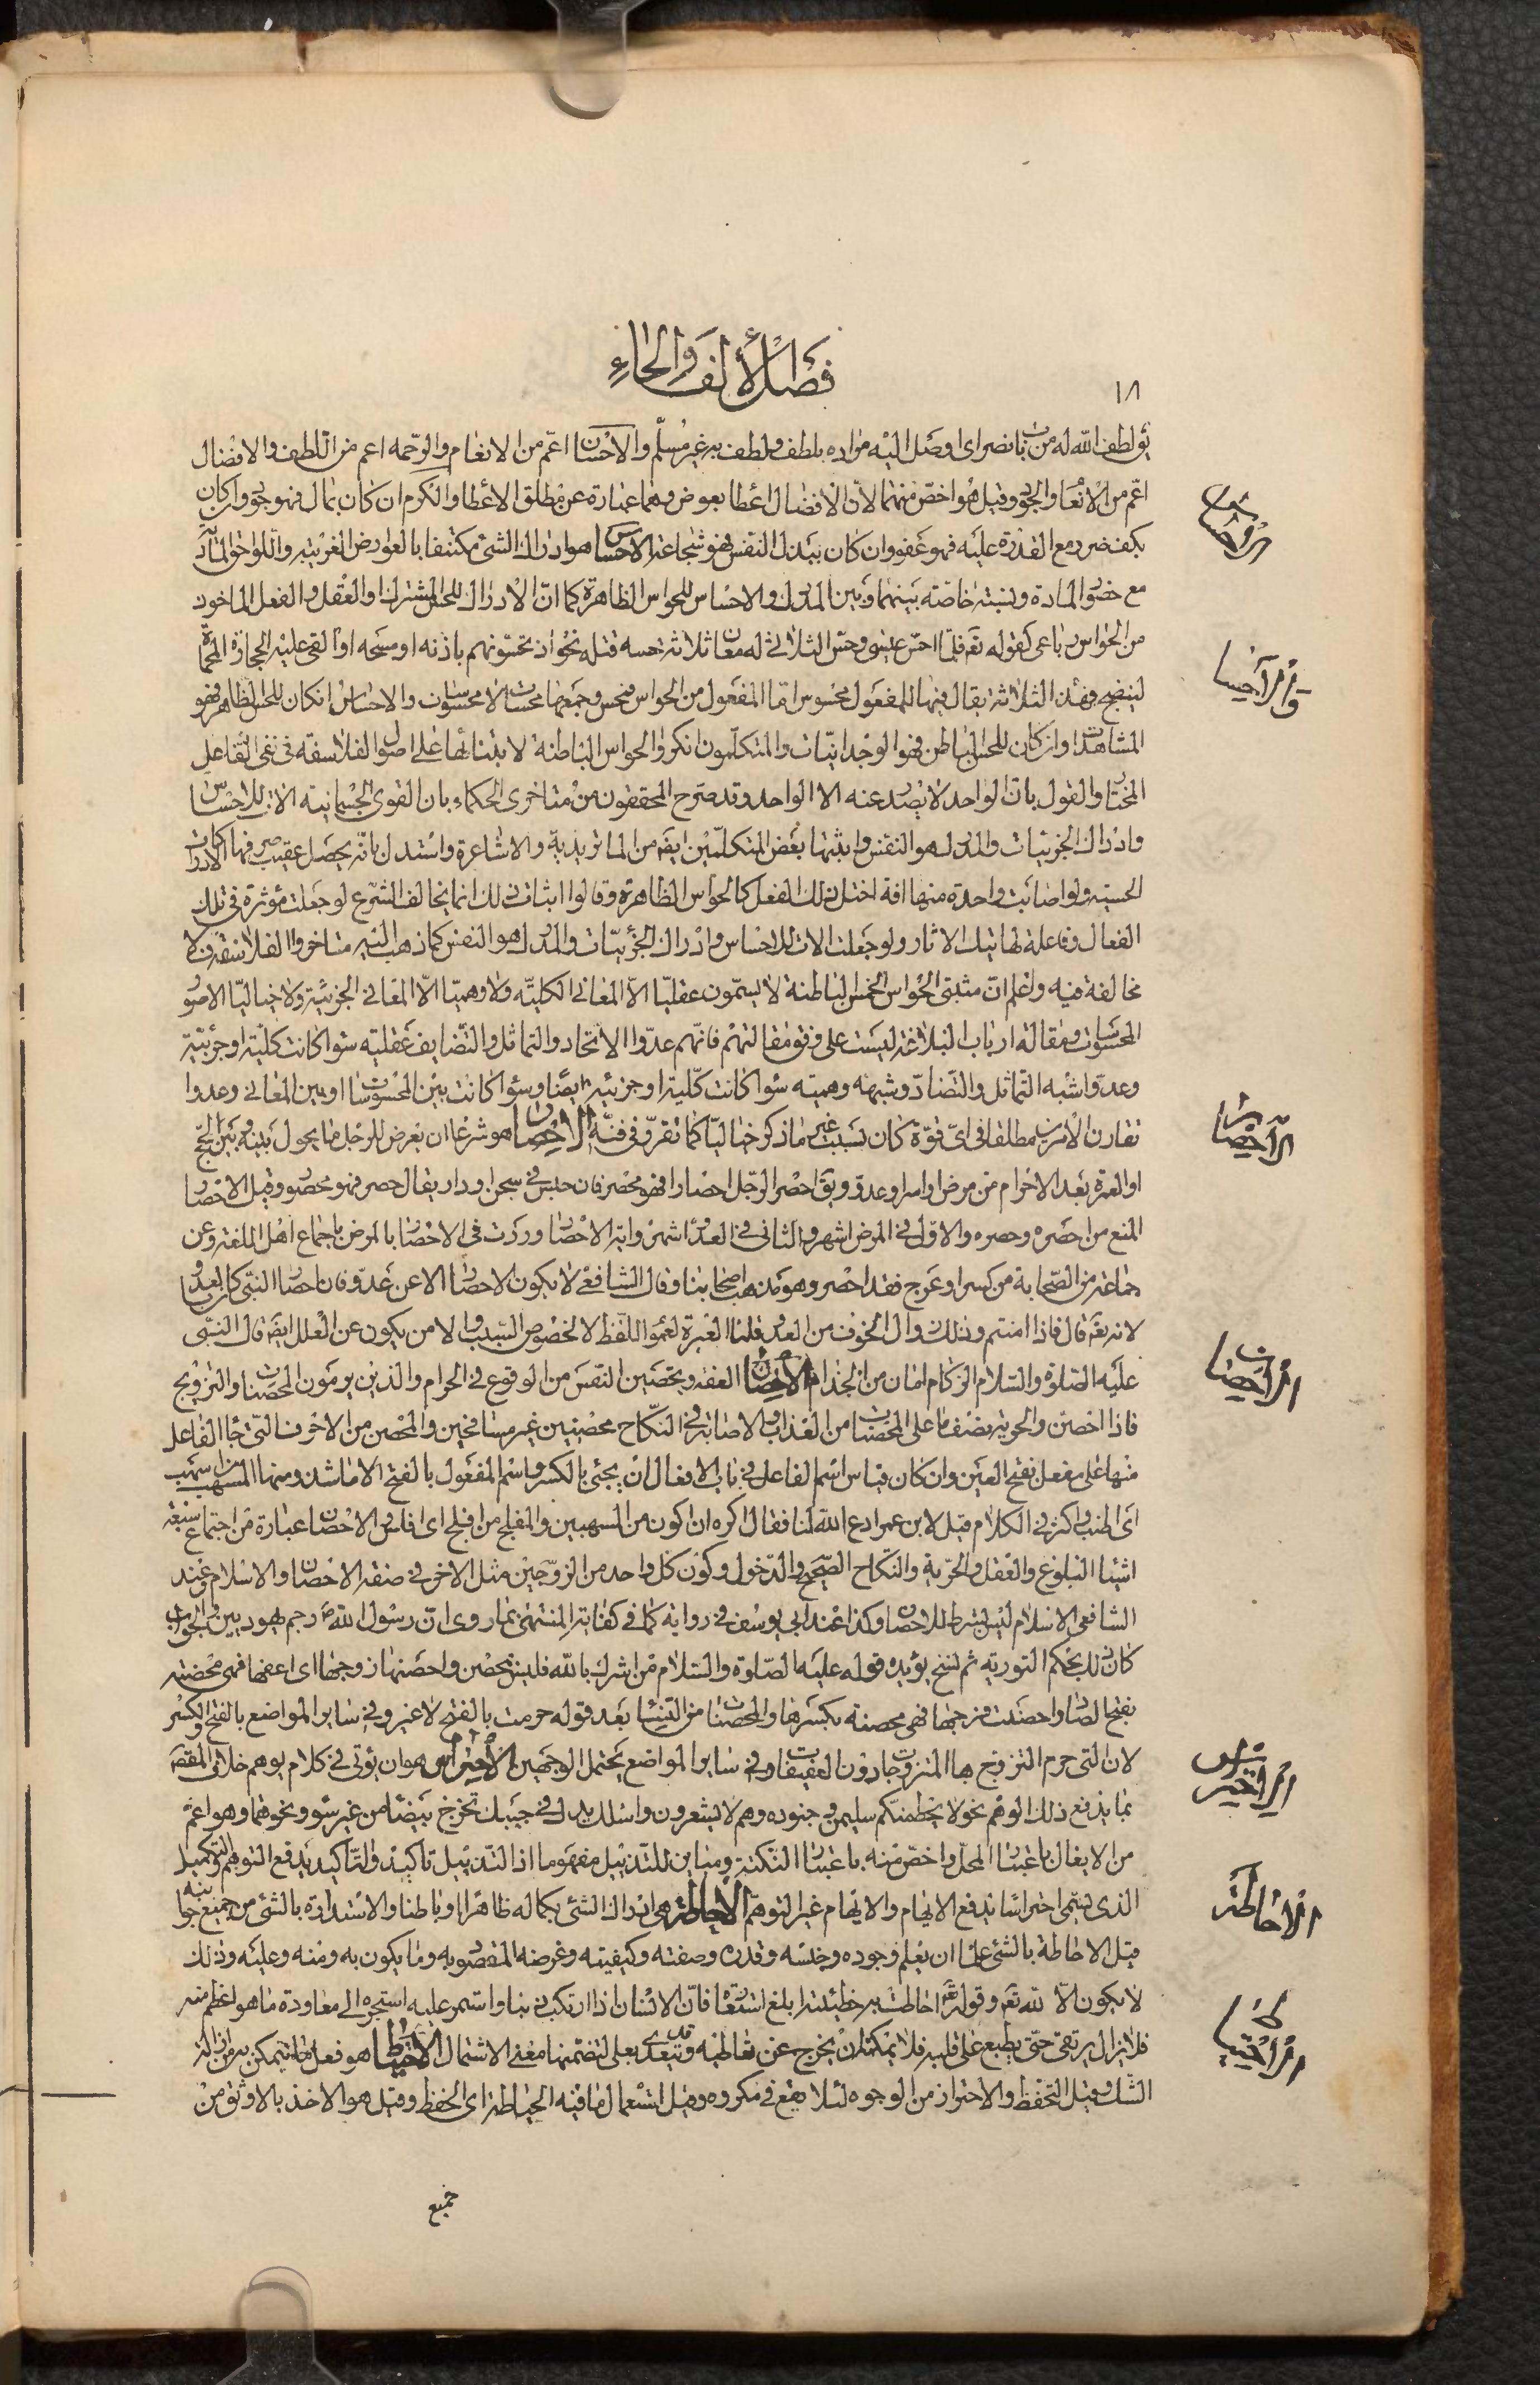 ١٨
فصل الألف والحاء
يق لطف الله له من باب نصر اى اوصل اليه مراده بلطف ولطف به غير مسلّم والاحسان اعمّ من الانعام والرحمه اعم من اللطف والافضال
اعمّ من الانعام والجود وقيل هو اخصّ منهما لان الافضال اعطا بعوض وهما عبارة عن مطلق الاعطا والكرم ان كان بمال فهو جود وان كان
بكف ضرر مع القدرة عليه فهو عفو وان كان ببذل النفس فهو شجاعة الاحساس هو ادراك الشئ مكتنفا بالعوارض الغريبة واللواحق المادية
مع حضور المادة ونسبة خاصّة بينهما وبين المدرك والاحساس للحواس الظاهرة كما انّ الادراك للحس المشترك او العقل والفعل الماخوذ
من الحواس رباعى كقوله تع فلمّا احسّ عيسى وحسّ الثلاثى له معان ثلاثة حسه قتله نحو اذ تحسّونهم باذنه او مسحه او القى عليه الحجارة المحماة
لينضج وهذه الثلاثة يقال فيها للمفعول محسوس امّا المفعول من الحواس فمحس وجمعها محسات لا محسوسات والاحساس ان كان للحس الظاهر فهو
المشاهدات وان كان للحس الباطن فهو الوجدانيّات والمتكلّمون انكروا الحواس الباطنة لابتنائها على اصول الفلاسفة فى نفى الفاعل
المختار والقول بانّ الواحد لا يصدر عنه الا الواحد وقد صرح المحققون من متاخرى الحكماء بان القوى الجسمانية الات للاحساس
وادراك الجزئيات والمدرك هو النفس واثبتها بعض المتكلّمين ايضا من الماتريدية والاشاعرة واستدل بانّه يحصل عقيب صرفها الادراكات
الحسية ولو اصابت واحدة منها افة اختل ذلك الفعل كالحواس الظاهرة وقالوا اثبات ذلك انما يخالف الشرع لو جعلت مؤثرة فى تلك
الفعال وفاعلة لها تلك الاثار ولو جعلت الات للاحساس وادراك الجزئيّات والمدرك هو النفس كما ذهب اليه متاخروا الفلاسفة فلا
مخالفة فيه واعلم انّ مثبتى الحواس الخمس الباطنة لا يسمّون عقليّا الاّ المعانى الكليّة ولا وهميّا الاّ المعانى الجزئيّة ولا خياليّا الا صور
المحسوسات ومقالة ارباب البلاغة ليست على وفق مقالتهم فانّهم عدّوا الاتحاد والتماثل والتضايف عقلية سوا كانت كليّة او جزئيّة
وعدّوا شبه التماثل والتضادّ وشبهه وهمية سوا كانت كليّة او جزئيّة ايضا وسوا كانت بين المحسوسات او بين المعانى وعدوا
تقارن الامرين مطلقا فى اىّ قوّة كان بسبب غير ما ذكر خياليّا كما تقرّر فى فنّه الاحصار هو شرعا ان يعرض للرجل ما يحول بينه وبين الحج
او العمرة بعد الاحرام من مرض او اسر او عدوّ ويق احصر الرجل احصارا فهو محصر فان حبس فى سجن او دار يقال حصر فهو محصور وقيل الاحصار
المنع من احصره وحصره والاوّل فى المرض اشهر والثانى فى العدو اشهر واية الاحصار وردت فى الاحصار بالمرض باجماع اهل اللغة وعن
جماعة من الصّحابة من كسر او عرج فقد احصر وهو مذهب اصحابنا وقال الشافعى لا يكون الاحصار الا عن عدوّ فان احصار النبى كان بعدو
لانه تع قال فاذا امنتم وذلك زوال الخوف من العدو قلنا العبرة لعموم اللّفظ لا لخصوص السبب والامن يكون عن العلل ايضا قال النبى
عليه الصّلوة والسّلام الزكام امان من الجذام الاحصان العفة وتحصين النفس من الوقوع فى الحرام والذين يرمون المحصنات والتزويج
فاذا احصنّ والحرية نصف ما على المحصنات من العذاب والاصابة فى النكاح محصنين غير مسافحين والمحصن من الاحرف التى جا الفاعل
منها على مفعل بفتح العين وان كان قياس اسم الفاعل فى باب الافعال ان يجئ بالكسر واسم المفعول بالفتح الا ما شذ ومنها المسهب من اسهب
اى اطنب واكثر فى الكلام قيل لابن عمر ادع الله لنا فقال اكره ان اكون من المسهبين والمفلج من افلج اى افلس والاحصان عبارة من اجتماع سبعة
اشيا البلوغ والعقل والحرّية والنكاح الصّحيح والدّخول وكون كل واحد من الزّوجين مثل الاخر فى صفة الاحصان والاسلام وعند
الشافعى الاسلام ليس بشرط للاحصان وكذا عند ابى يوسف فى رواية كما فى كفاية المنتهى بما روى انّ رسول الله ص رجم يهوديين والجواب
كان ذلك بحكم التورية ثم نسخ يؤيده قوله عليه الصّلوة والسّلام من اشرك بالله فليس بمحصن واحصنها زوجها اى اعفها فهى محصنة
بفتح الصاد واحصنت فرجها فهى محصنة بكسرها والمحصنات من النسا بعد قوله حرمت بالفتح لا غير وفى ساير المواضع بالفتح والكسر
لان التى حرم التزويج بها المتزوجات دون العفيفات وفى ساير المواضع يحتمل الوجهين الاحتراس هو ان يؤتى فى كلام يوهم خلاف المقصود
بما يدفع ذلك الوهم نحو لا يحطمنكم سليمن وجنوده وهم لا يشعرون واسلك يدك فى جيبك تخرج بيضا من غير سوء ونحوهما وهو اعمّ
من الايغال باعتبار المحلّ واخصّ منه باعتبار النكتة ومباين للتذييل مفهوما اذ التذييل تاكيد والتاكيد يدفع التوهم والتكميل
الذى يسمّى احتراسا يدفع الايهام والايهام غير التوهّم الاحاطة هى ادراك الشئ بكماله ظاهرا وباطنا والاستدارة بالشئ من جميع جوانبه
قيل الاحاطة بالشئ علما ان يعلم وجوده وجنسه وقدره وصفته وكيفيته وغرضه المقصود به وما يكون به ومنه وعليه وذلك
لا يكون الاّ لله تع وقوله تع احاطت به خطيئته ابلغ استعارة فانّ الانسان اذا ارتكب ذنبا واستمر عليه استجره الى معاودة ما هو اعظم منه
فلا يزال يرتقى حتّى يطبع على قلبه فلا يمكنه ان يخرج عن تعاطيه وقد تعدى بعلى لتضمنها معنى الاشتمال الاحتياط هو فعل ما يتمكن به من ازالة
الشّك وقيل التحفّظ والاحتراز من الوجوه لئلا يقع فى مكروه وقيل استعمال ما فيه الحياطة اى الحفظ وقيل هو الاخذ بالاوثق من
جميع
الاحساس
الاحصار
الاحصان
الاحتراس
الاحاطة
الاحتياط